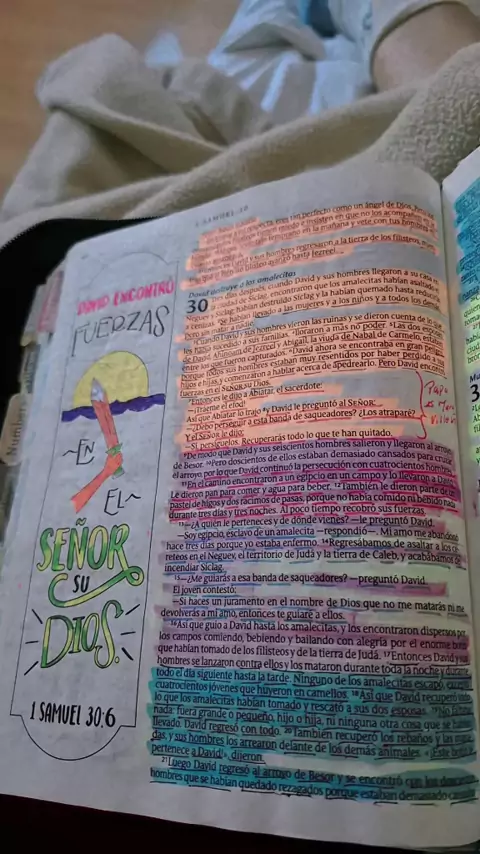 1 SAMUEL
DAVID ENCONTRÓ
FUERZAS
EN
EL
SEÑOR
SU
DIOS.
1 SAMUEL 30:6
David destruye a los amalecitas
30 Tres días después, cuando David y sus hombres llegaron a su casa en
Neguev y Siclag; habían destruido Siclag y la habían quemado hasta
a cenizas. Se habían llevado a las mujeres y a los niños y a todos los demás
pero sin matar a nadie.
Cuando David y sus hombres vieron las ruinas y se dieron cuenta de lo que
les había sucedido a sus familias, lloraron a más no poder. Las dos esposas
de David, Ahinoam de Jezreel y Abigail, la viuda de Nabal de Carmelo, estaban
entre los que fueron capturados. David ahora se encontraba en gran peligro
porque todos sus hombres estaban muy resentidos por haber perdido a sus
hijos e hijas, y comenzaron a hablar acerca de apedrearlo. Pero David encontró
fuerzas en el SEÑOR su Dios.
Entonces le dijo a Abiatar, el sacerdote:
—¡Tráeme el efod!
Así que Abiatar lo trajo y David le preguntó al SEÑOR:
—¿Debo perseguir a esta banda de saqueadores? ¿Los atraparé?
Y el SEÑOR le dijo:
—Sí, persíguelos. Recuperarás todo lo que te han quitado.
De modo que David y sus seiscientos hombres salieron y llegaron al arroyo
de Besor. 10 Pero doscientos de ellos estaban demasiado cansados para cruzar
el arroyo, por lo que David continuó la persecución con cuatrocientos hombres.
11 En el camino encontraron a un egipcio en un campo y lo llevaron a David.
Le dieron pan para comer y agua para beber. 12 También le dieron parte de un
pastel de higos y dos racimos de pasas, porque no había comido ni bebido nada
durante tres días y tres noches. Al poco tiempo recobró sus fuerzas.
13 —¿A quién le perteneces y de dónde vienes? —le preguntó David.
—Soy egipcio, esclavo de un amalecita —respondió—. Mi amo me abandonó
hace tres días porque yo estaba enfermo. 14 Regresábamos de asaltar a los
cereteos en el Neguev, el territorio de Judá y la tierra de Caleb, y acabábamos de
incendiar Siclag.
15 —¿Me guiarás a esa banda de saqueadores? —preguntó David.
El joven contestó:
—Si haces un juramento en el nombre de Dios que no me matarás ni me
devolverás a mi amo, entonces te guiaré a ellos.
16 Así que guio a David hasta los amalecitas, y los encontraron dispersos por
los campos comiendo, bebiendo y bailando con alegría por el enorme botín
que habían tomado de los filisteos y de la tierra de Judá. 17 Entonces David y sus
hombres se lanzaron contra ellos y los mataron durante toda la noche y durante
todo el día siguiente hasta la tarde. Ninguno de los amalecitas escapó, excepto
cuatrocientos jóvenes que huyeron en camellos. 18 Así que David recuperó todo
lo que los amalecitas habían tomado y rescató a sus dos esposas. 19 No faltaba
nada: fuera grande o pequeño, hijo o hija, ni ninguna otra cosa que se habían
llevado. David regresó con todo. 20 También recuperó los rebaños y las manadas,
y sus hombres los arrearon delante de los demás animales. «¡Este botín le
pertenece a David!», dijeron.
21 Luego David regresó al arroyo de Besor y se encontró con los doscientos
hombres que se habían quedado rezagados porque estaban demasiado cansados